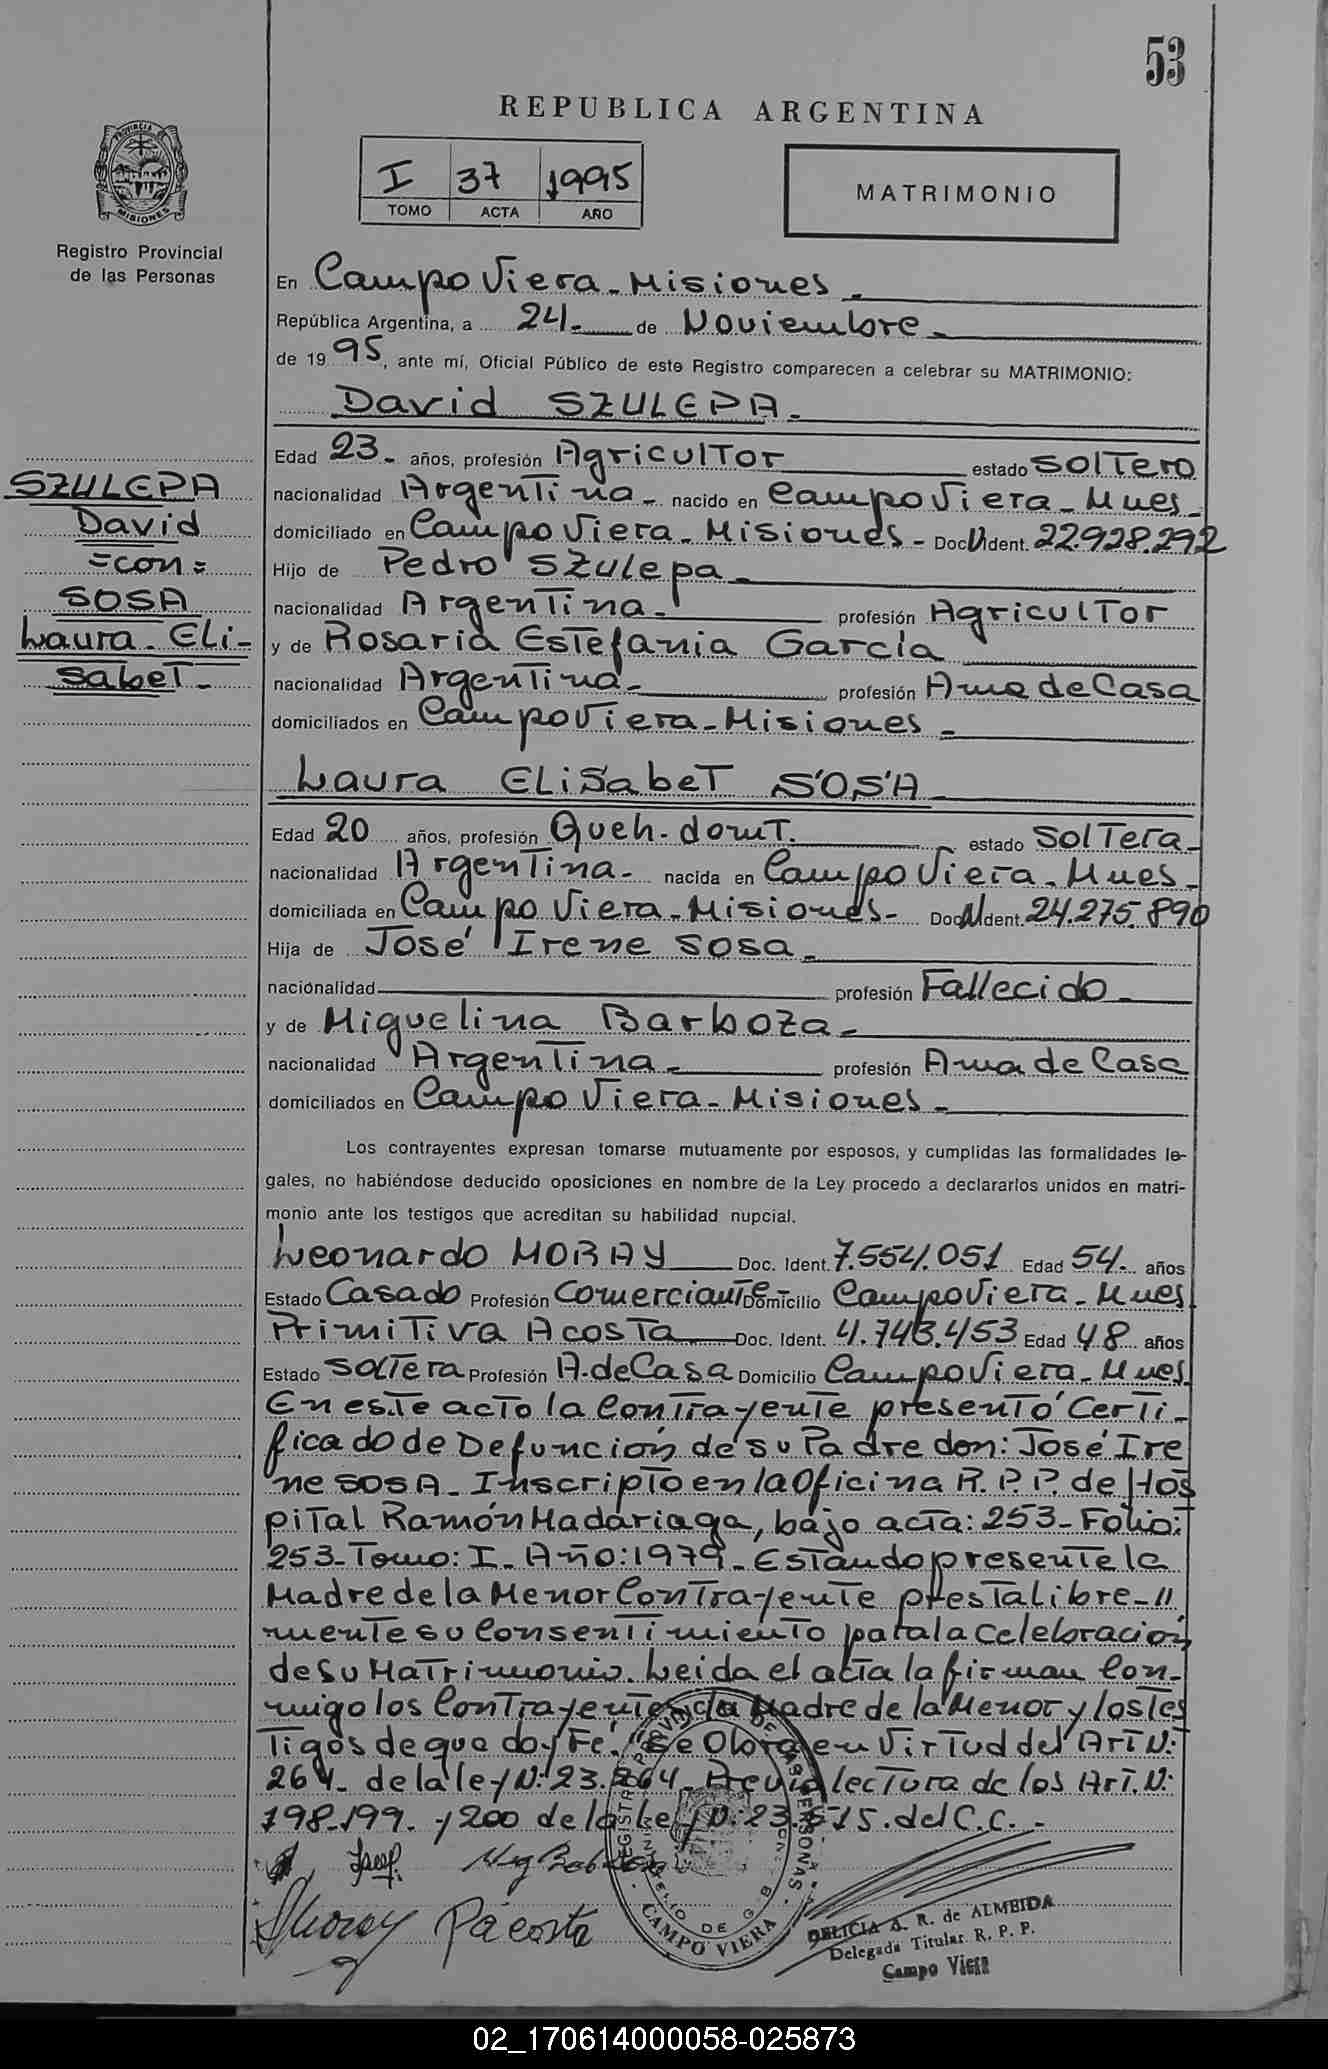 53
REPUBLICA ARGENTINA
PROVINCIA DE MISIONES
Registro Provincial
de las Personas
I 37 1995
TOMO ACTA AÑO
MATRIMONIO
En Campo Viera - Misiones -
República Argentina, a 24 - de Noviembre -
de 1995, ante mí, Oficial Público de este Registro comparecen a celebrar su MATRIMONIO:
David SZULEPA -
SZULEPA
David
=con=
SOSA
Laura Eli-
sabet -
Edad 23 - años, profesión Agricultor estado soltero
nacionalidad Argentina - nacido en Campo Viera - Mnes -
domiciliado en Campo Viera - Misiones - Doc. Ident. 22.928.292
Hijo de Pedro Szulepa -
nacionalidad Argentina - profesión Agricultor
y de Rosaria Estefania García
nacionalidad Argentina - profesión Ama de Casa
domiciliados en Campo Viera - Misiones -
Laura Elisabet SOSA
Edad 20 años, profesión Queh. domt. estado soltera -
nacionalidad Argentina - nacida en Campo Viera - Mnes -
domiciliada en Campo Viera - Misiones - Doc. Ident. 24.275.890
Hija de José Irene Sosa -
nacionalidad profesión Fallecido -
y de Miguelina Barboza -
nacionalidad Argentina - profesión Ama de Casa
domiciliados en Campo Viera - Misiones -
Los contrayentes expresan tomarse mutuamente por esposos, y cumplidas las formalidades le-
gales, no habiéndose deducido oposiciones en nombre de la Ley procedo a declararlos unidos en matri-
monio ante los testigos que acreditan su habilidad nupcial.
Leonardo MORAY Doc. Ident. 7.554.051 Edad 54 - años
Estado Casado Profesión Comerciante - Domicilio Campo Viera - Mnes
Primitiva Acosta Doc. Ident. 4.743.453 Edad 48 años
Estado Soltera Profesión A. de Casa Domicilio Campo Viera - Mnes
En este acto la Contrayente presentó Certi-
ficado de Defunción de su Padre don: José Ire
ne SOSA - Inscripto en la Oficina R.P.P. de Hos
pital Ramón Madariaga, bajo acta: 253 - Folio:
253 - Tomo: I - Año: 1979 - Estando presente la
Madre de la Menor Contrayente presta libre - //
mente su Consentimiento para la Celebración
de su Matrimonio. Leida el acta la firman Con-
migo los Contrayentes, la Madre de la Menor y los Tes
tigos de que doy Fé. Se Obra en Virtud del Art N:
264 - de la ley N: 23.264 - Previa lectura de los Art. N:
198 - 199 - y 200 de la Ley N: 23.515 - del C.C. -
P Acosta
REGISTRO PROVINCIAL DE LAS PERSONAS
CAMPO VIERA
DELICIA A. R. de ALMEIDA
Delegada Titular R. P. P.
Campo Viera
02_170614000058-025873